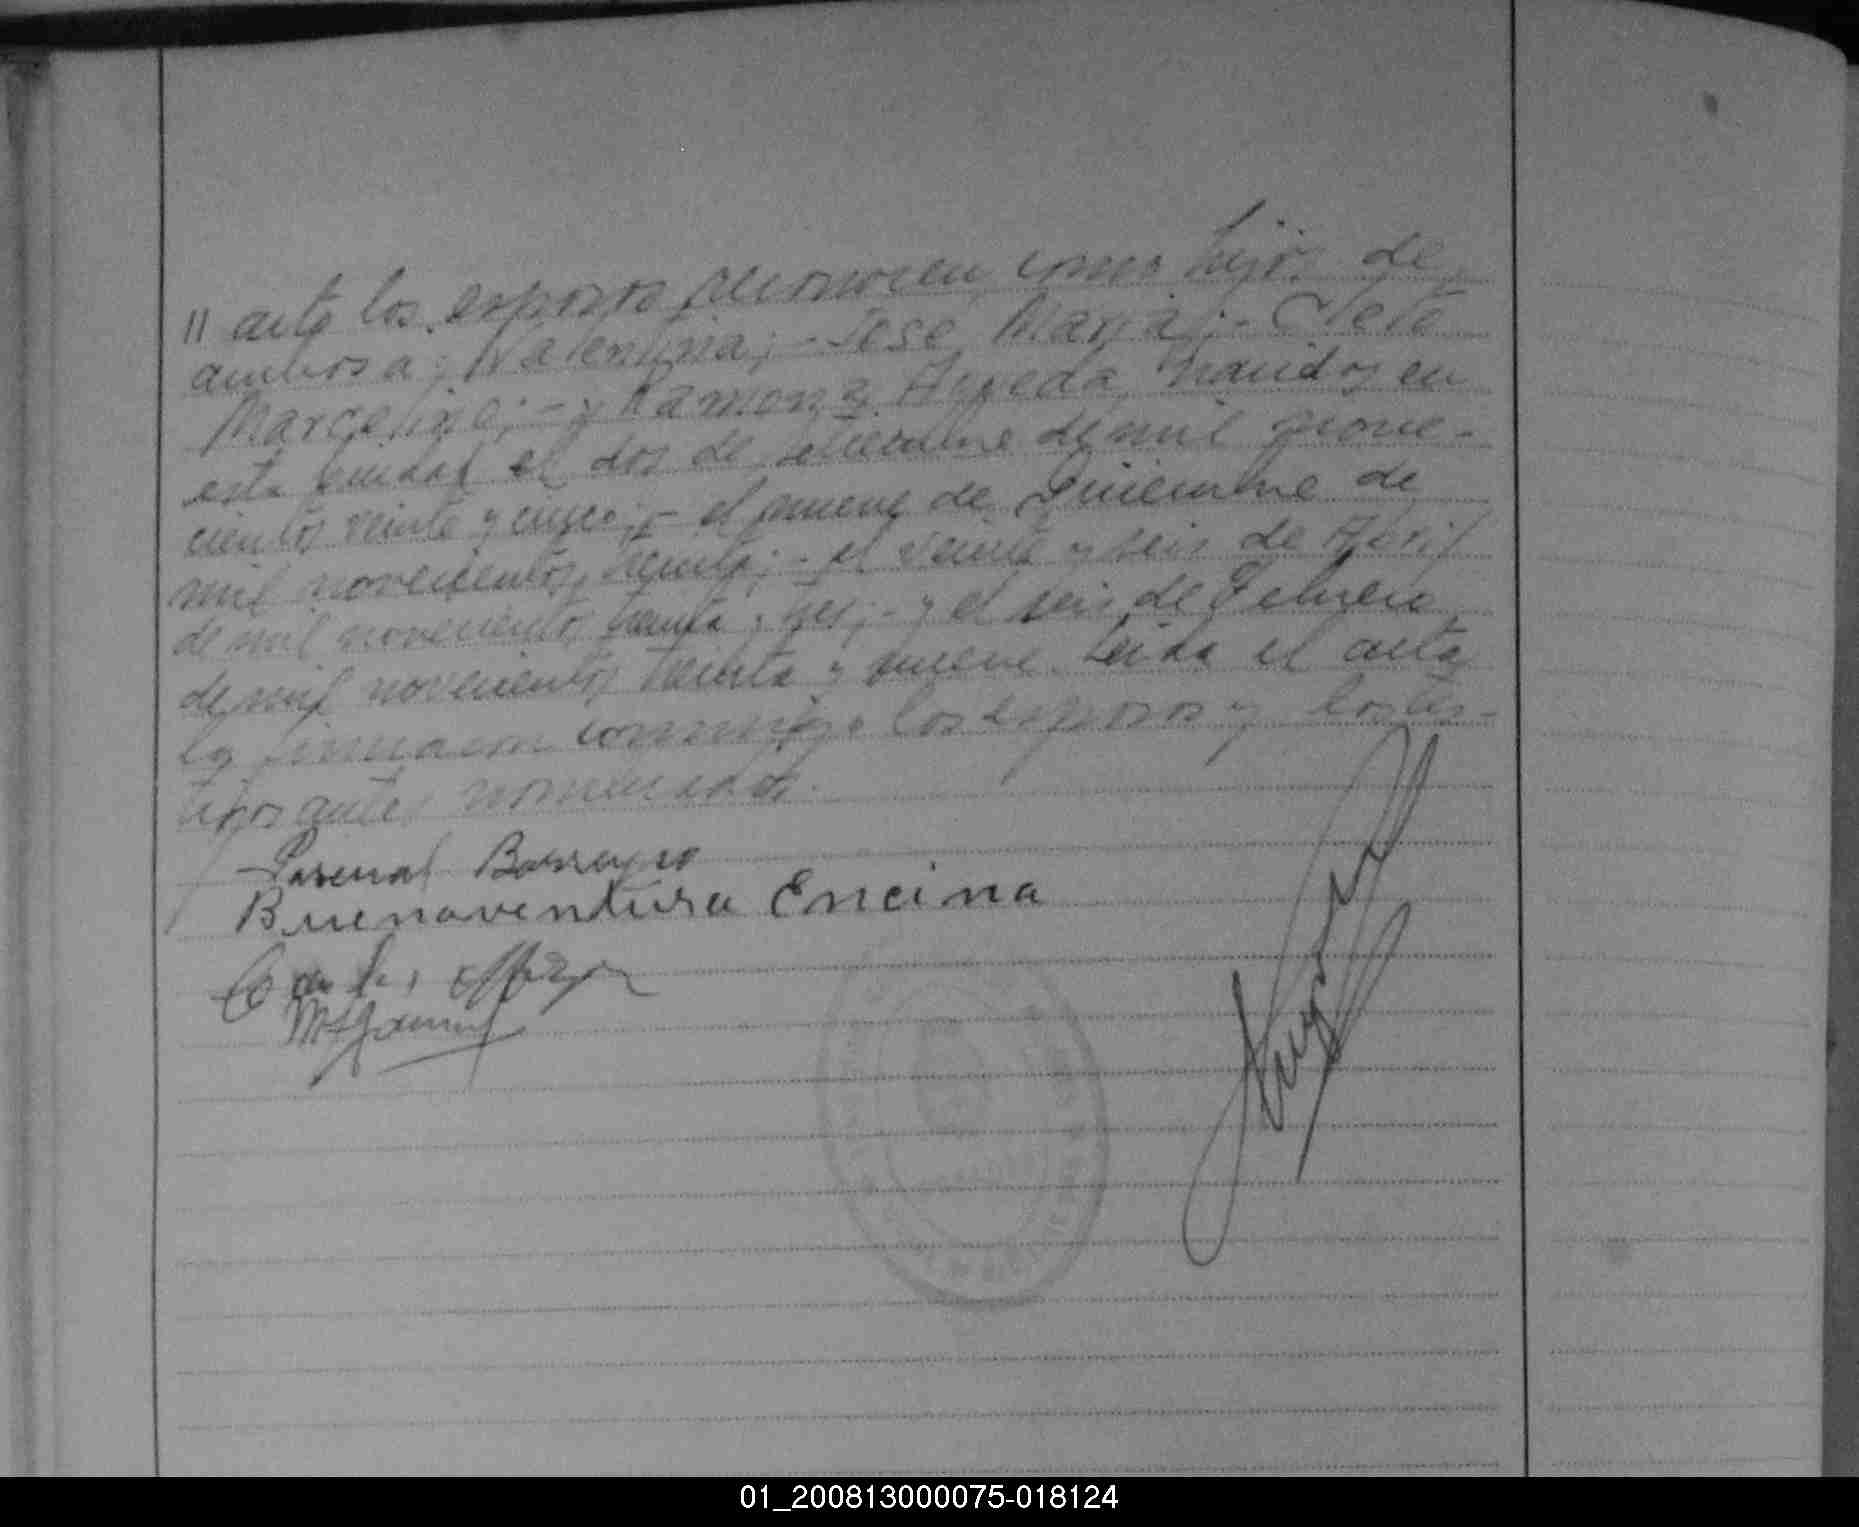 // acto los esposos reconocen como hijos de
ambos a: Valentina; - José María; - Cleto
Marcelino; - y Ramona Ayueda, nacidos en
esta ciudad el dos de setiembre de mil nove-
cientos veinte y cinco; - el nueve de Diciembre de
mil novecientos treinta; - el veinte y seis de Abril
de mil novecientos treinta y tres; - y el seis de Febrero
de mil novecientos treinta y nueve. Leida el acta
la firmaron conmigo los esposos y los tes-
tigos antes nombrados.
Pascual Barreyro
Buenaventura Encina
01_200813000075-018124